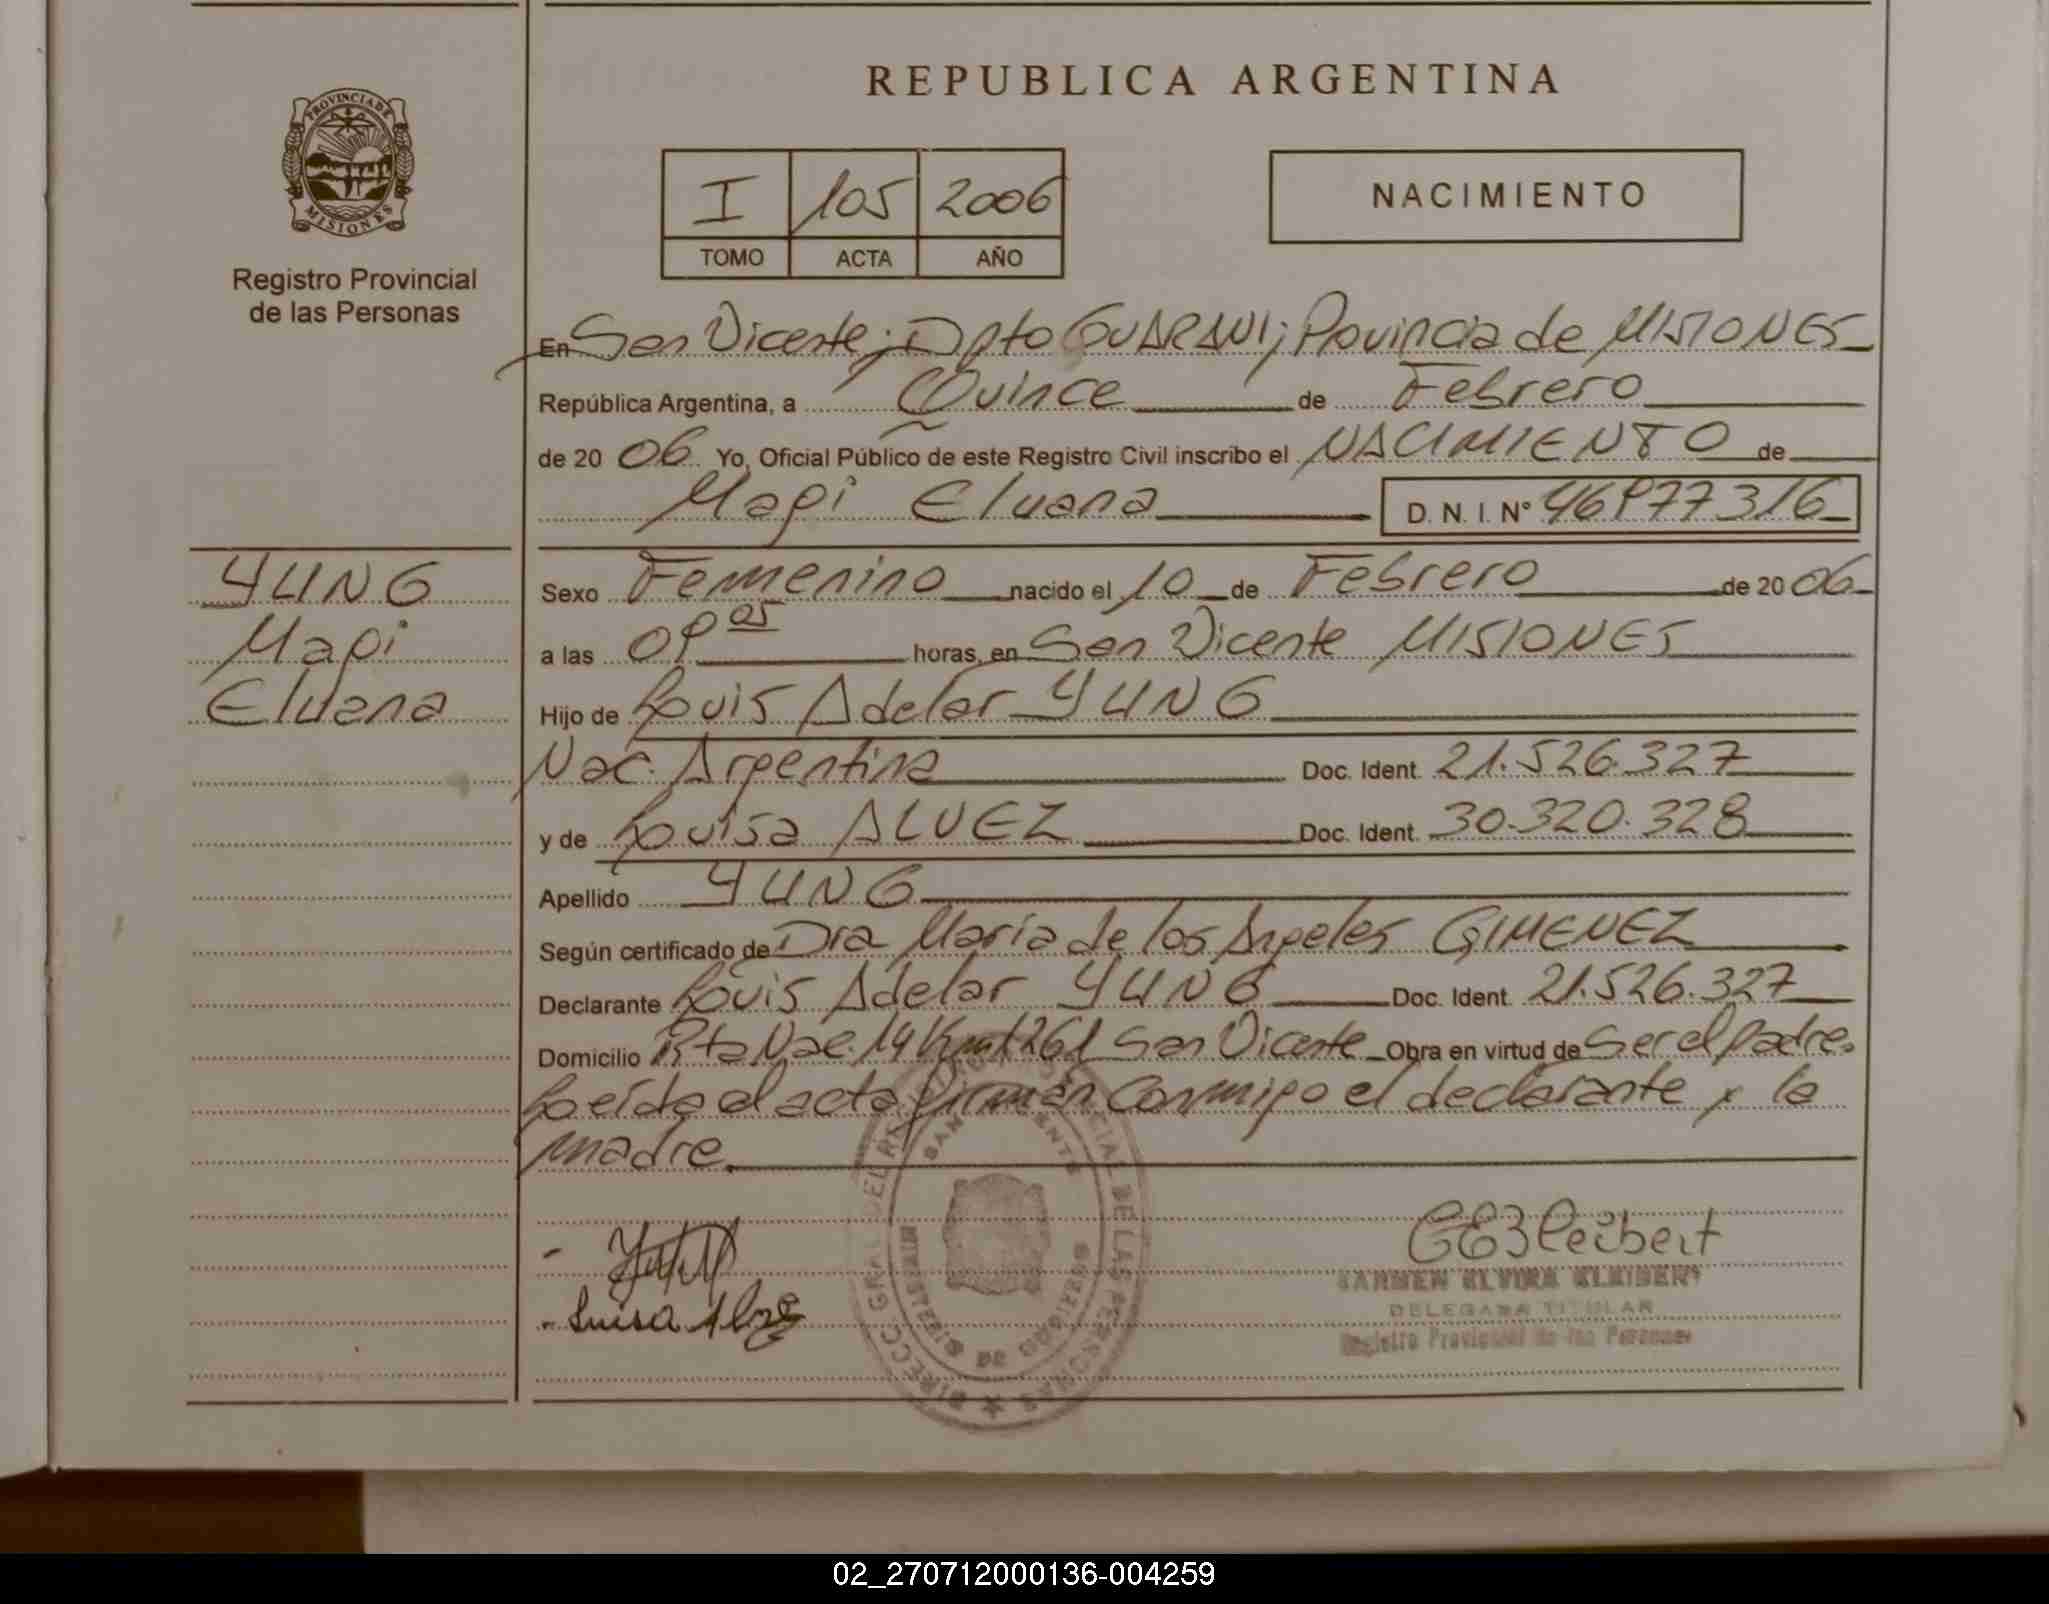 REPUBLICA ARGENTINA
PROVINCIA DE
MISIONES
Registro Provincial
de las Personas
I 105 2006
TOMO ACTA AÑO
NACIMIENTO
En San Vicente; Dpto GUARANI; Provincia de MISIONES
República Argentina, a Quince de Febrero
de 20 06 Yo, Oficial Público de este Registro Civil inscribo el NACIMIENTO de
Magi Eluana D. N. I. N° 46977316
YUNG
Magi
Eluana
Sexo Femenino nacido el 10 de Febrero de 20 06
a las 09 05 horas, en San Vicente MISIONES
Hijo de Louis Adelar YUNG
Nac. Argentina Doc. Ident. 21.526.327
y de Louisa ALVEZ Doc. Ident. 30.320.328
Apellido YUNG
Según certificado de Dra María de los Angeles GIMENEZ
Declarante Louis Adelar YUNG Doc. Ident. 21.526.327
Domicilio Rta Nac. 14 Km 1261 San Vicente Obra en virtud de Ser el padre.
Leída el acta firman conmigo el declarante y la
madre.
DIRECC. GRAL. DEL REGISTRO PROVINCIAL DE LAS PERSONAS
SAN VICENTE
MINISTERIO DE GOBIERNO
- Luisa Alvez
CEKleibert
CARMEN ELVIRA KLEIBERT
DELEGADA TITULAR
Registro Provincial de las Personas
02_270712000136-004259